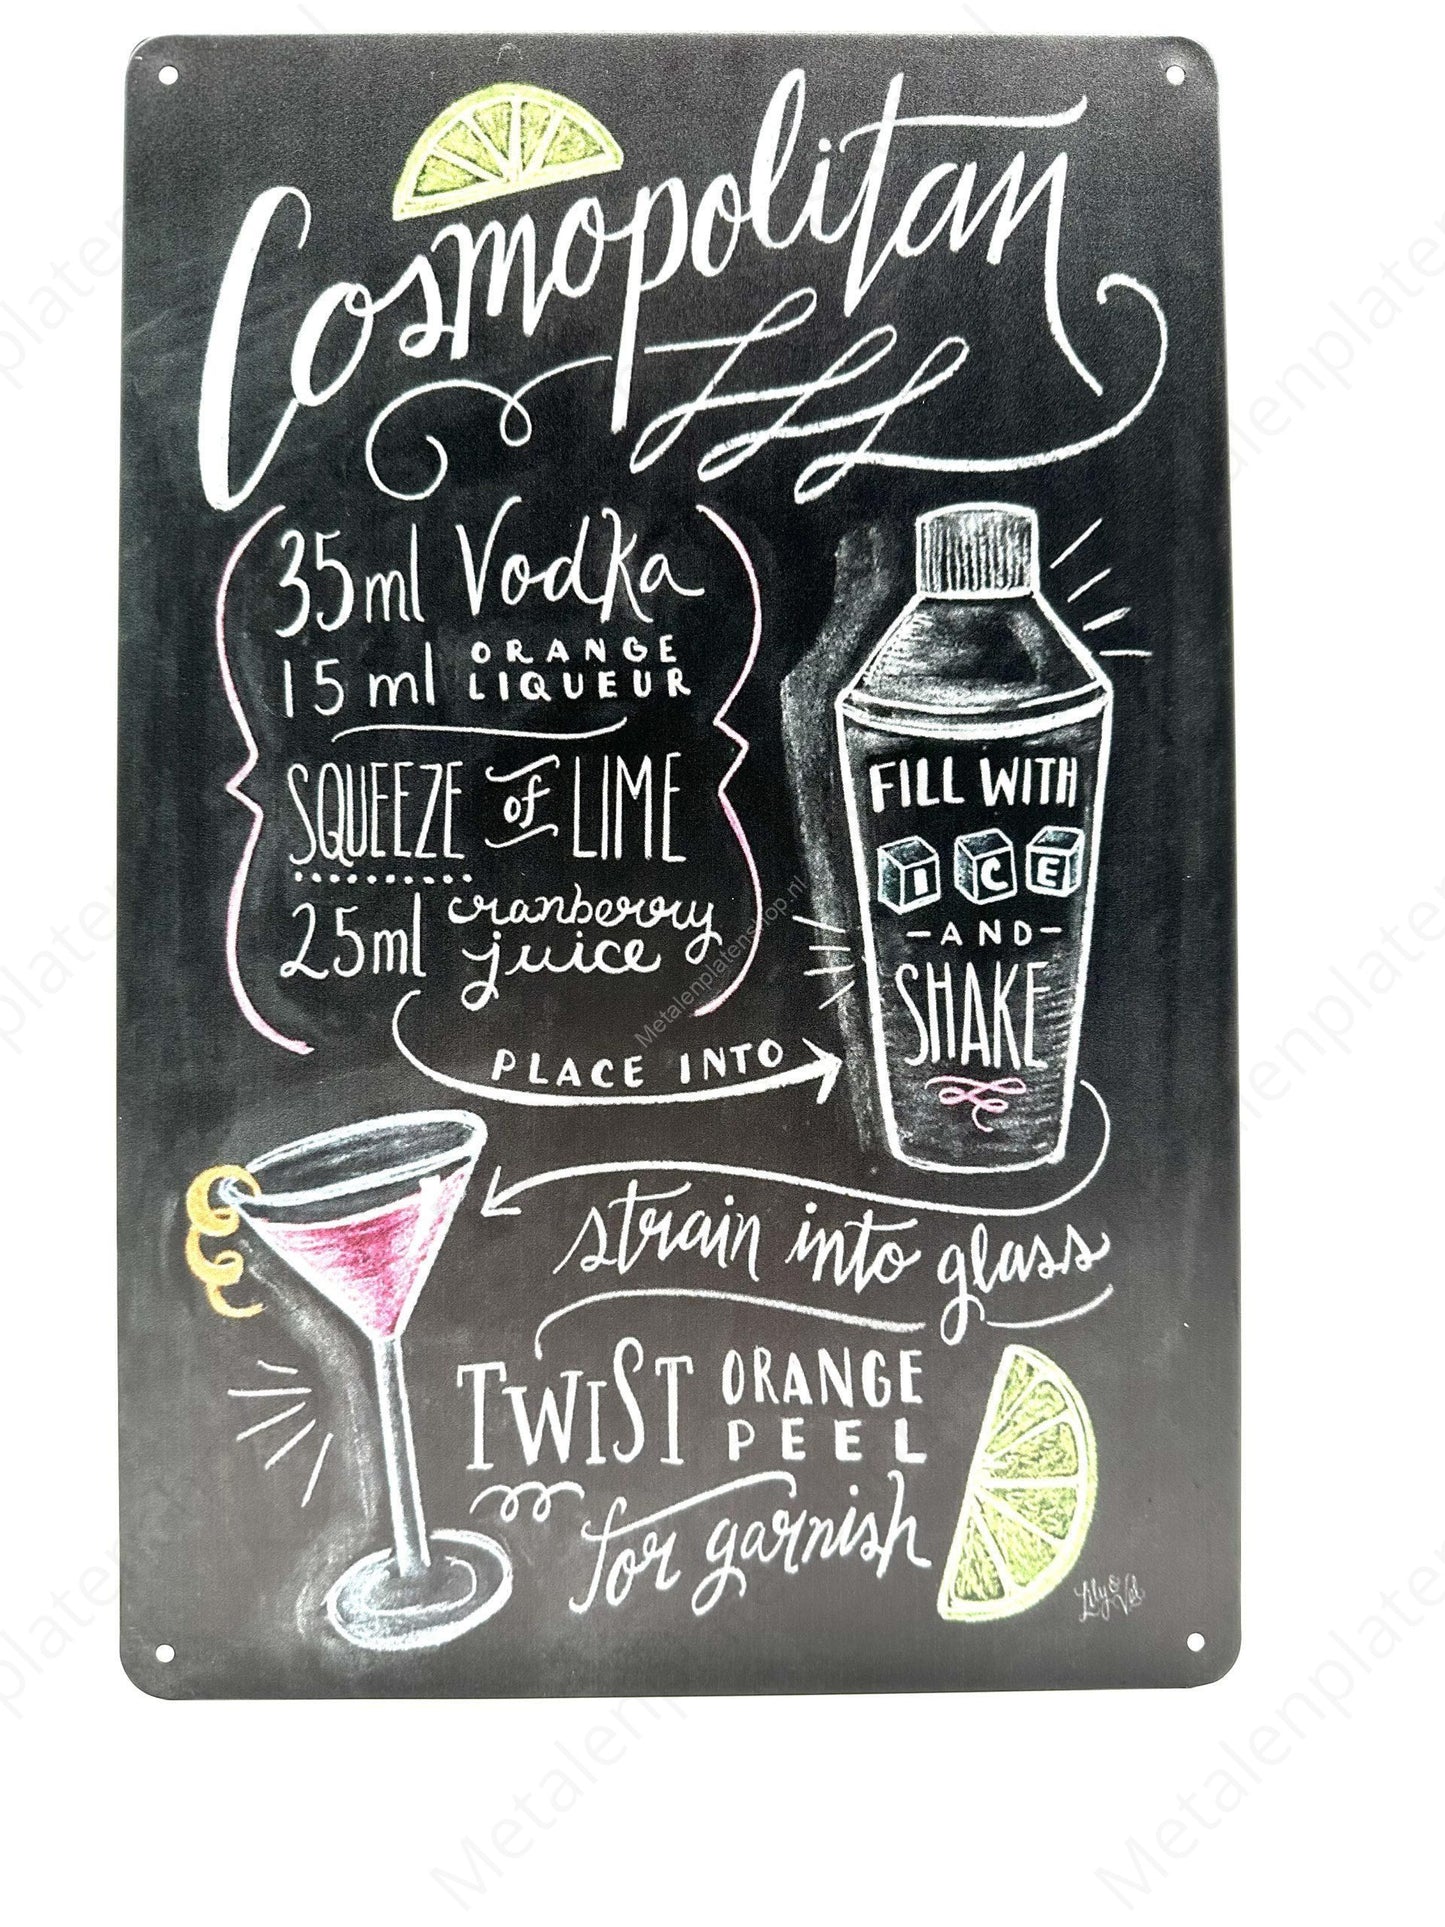 Cosmopolitan
35ml Vodka
15ml ORANGE
LIQUEUR
SQUEEZE of LIME
25ml cranberry
juice
PLACE INTO
FILL WITH
ICE
-AND-
SHAKE
strain into glass
TWIST ORANGE
PEEL
for garnish
Lily & Val
Metalenplatenshop.nl